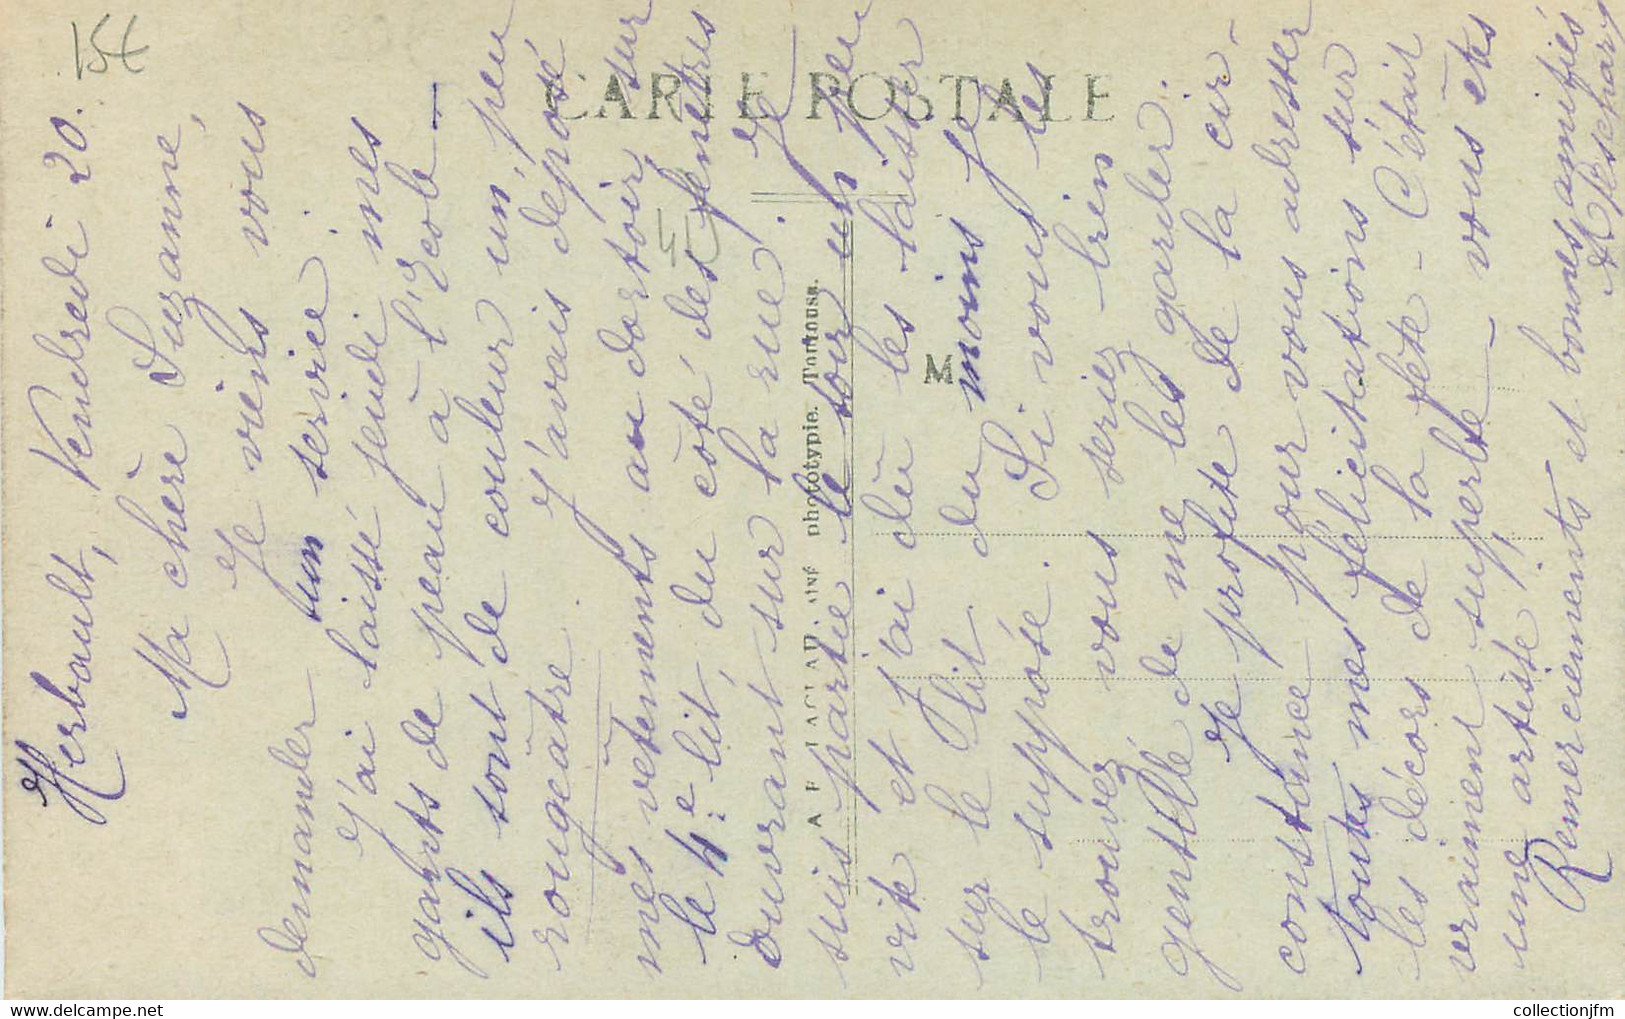 15€
Herbault, Vendredi 20.
Ma chère Suzanne,
Je viens vous
demander un service.
J'ai laissé jeudi mes
gants de peau à l'Ecole -
ils sont de couleur un peu
rougeâtre. J'avais déposé
mes vêtements au dortoir, sur
le 4e lit, du côté des fenêtres
ouvrant sur la rue. Je
suis partie le soir un peu
vite et j'ai dû les laisser
sur le lit du moins je
le suppose. Si vous les
trouvez vous seriez bien
gentille de me les garder.
Je profite de la cir-
constance pour vous adresser
toutes mes félicitations sur
les décors de la fête - C'était
vraiment superbe - vous êtes
une artiste!
Remerciements et bonnes amitiés
CARTE POSTALE
phototypie. Toulouse.
M
collectionjfm